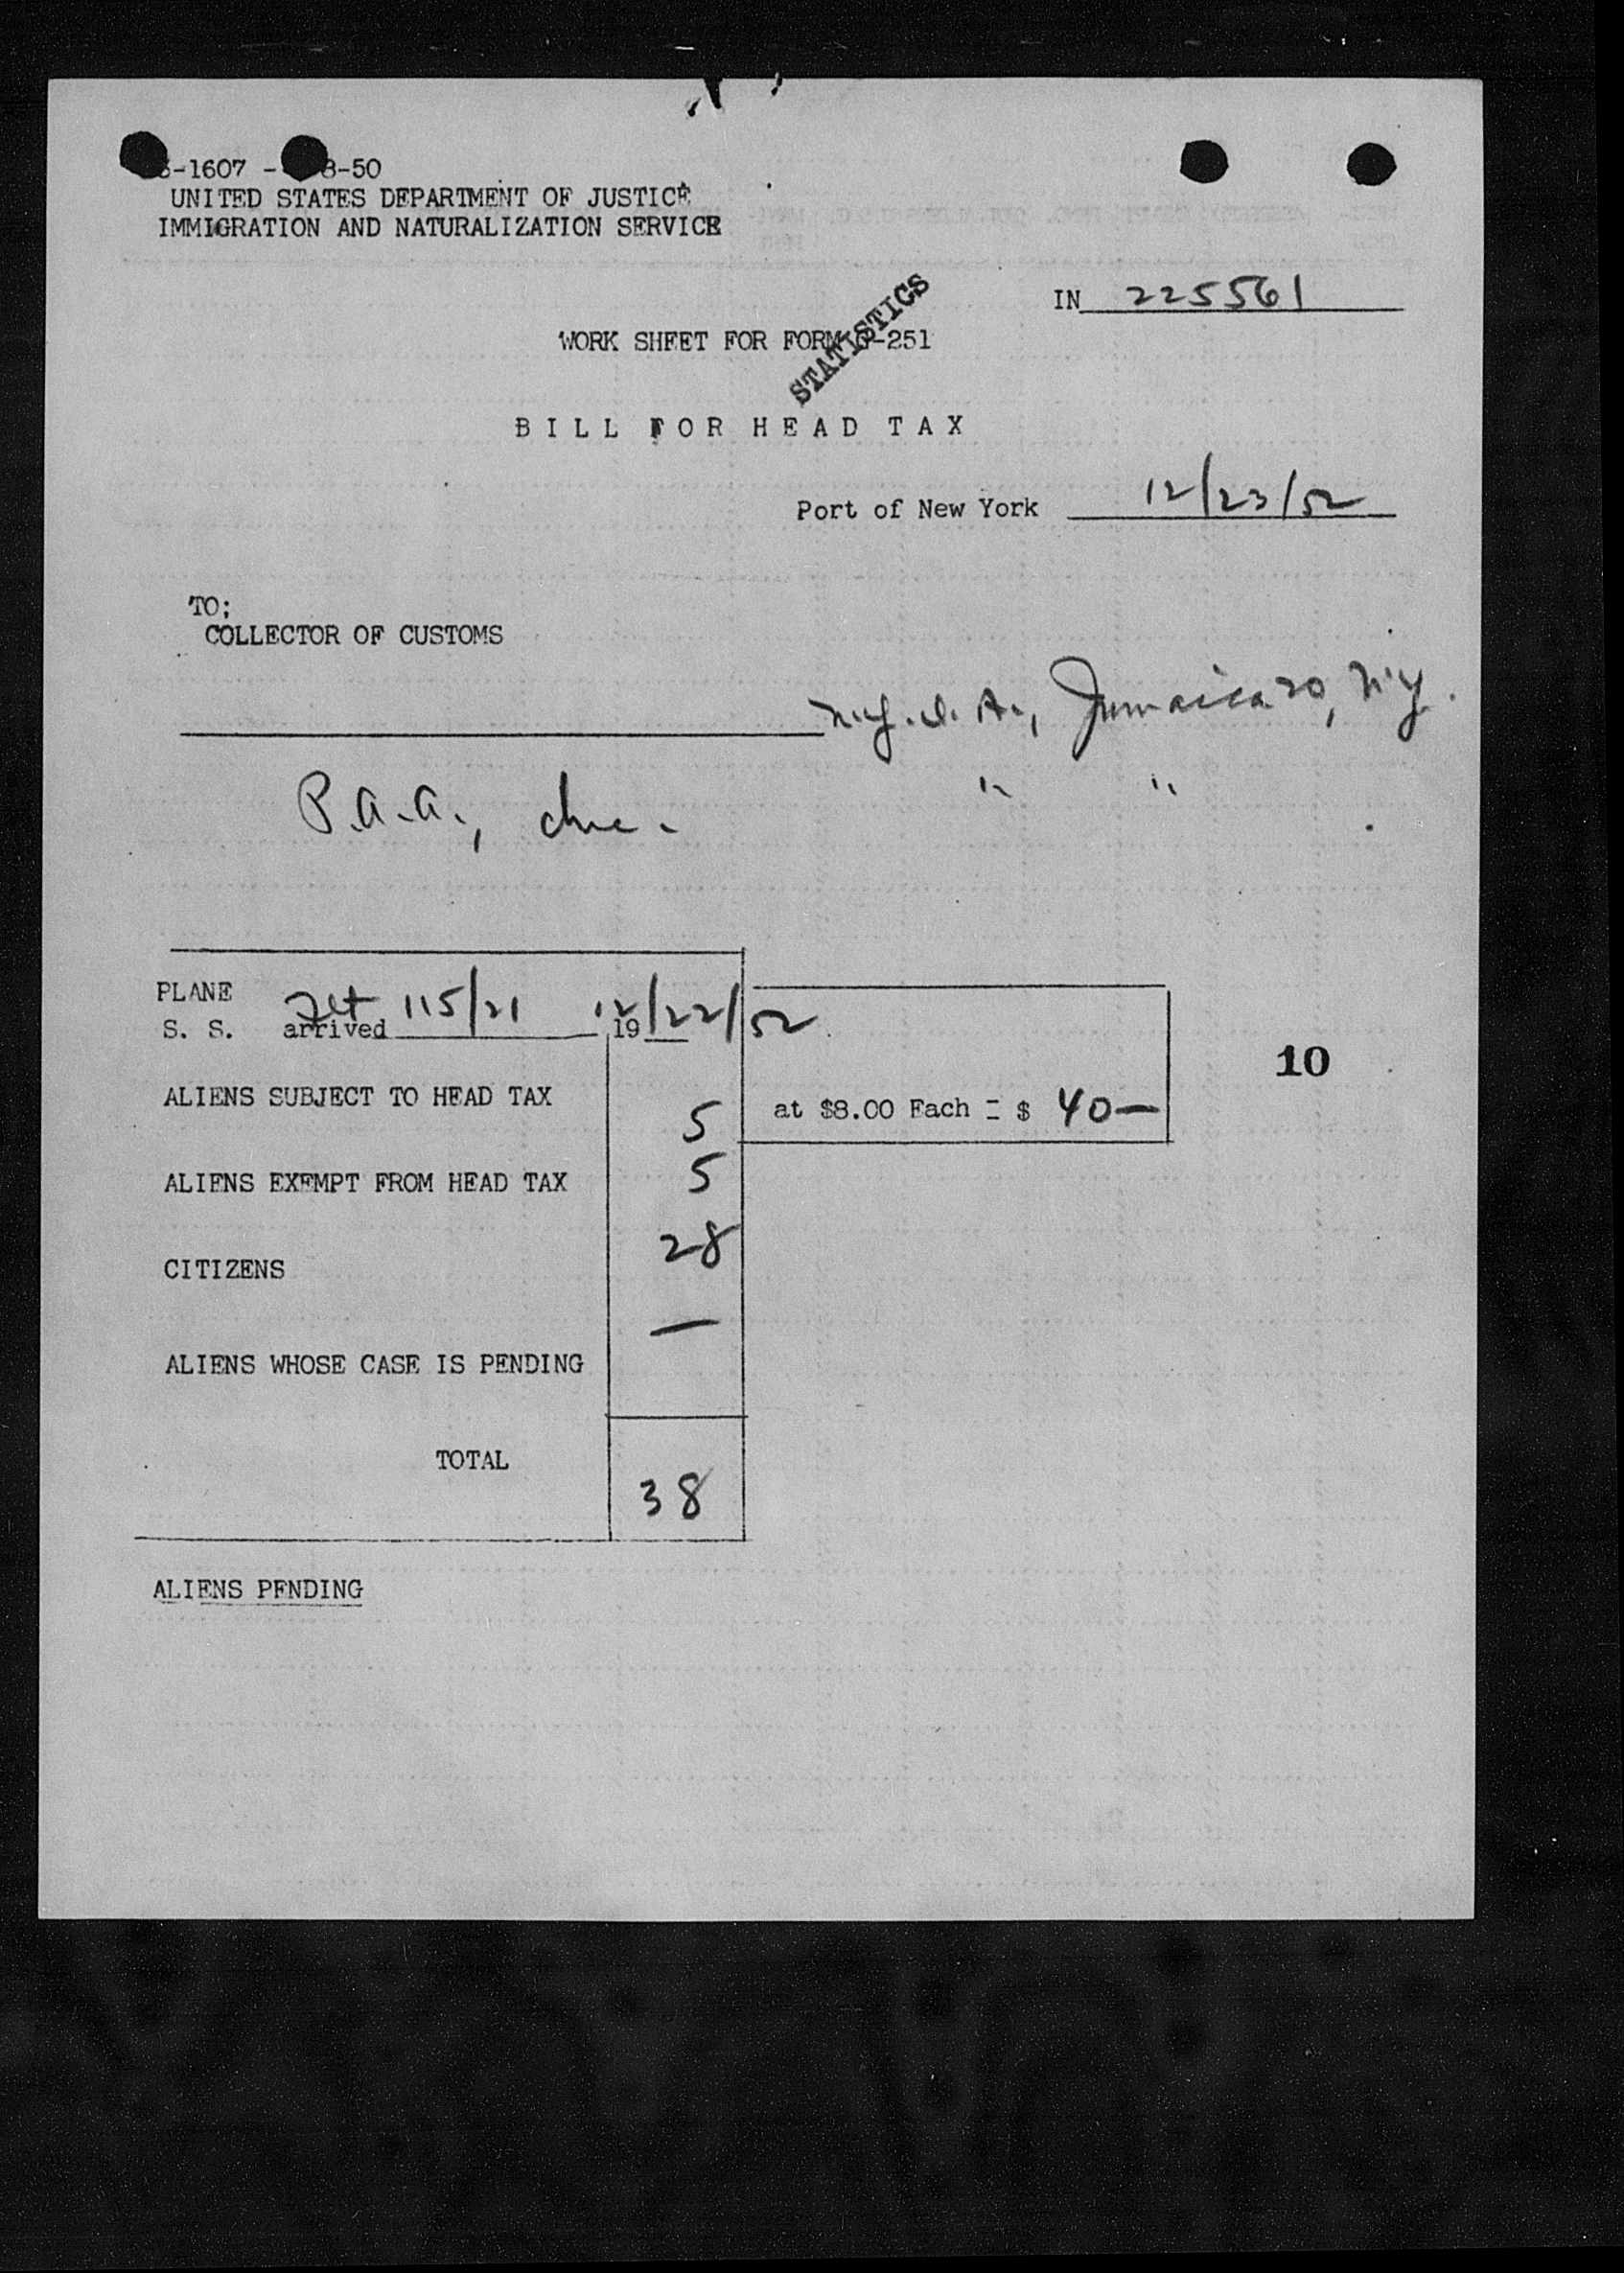 -1607 - 8-50
UNITED STATES DEPARTMENT OF JUSTICE
IMMIGRATION AND NATURALIZATION SERVICE
IN 225561
STATISTICS
WORK SHEET FOR FORM G-251
BILL FOR HEAD TAX
Port of New York 12/23/52
TO;
COLLECTOR OF CUSTOMS
N.Y.I.A., Jamaica 30, N.Y.
P.A.A., Inc. " "
PLANE
S. S. arrived Flt 115/21 19 12/22/52
10
ALIENS SUBJECT TO HEAD TAX 5 at $8.00 Each = $ 40—
ALIENS EXEMPT FROM HEAD TAX 5
CITIZENS 28
ALIENS WHOSE CASE IS PENDING —
TOTAL 38
ALIENS PENDING